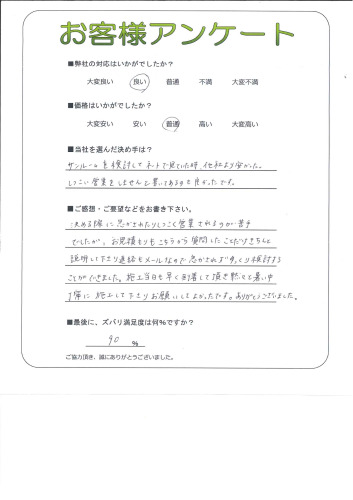 お客様アンケート
■弊社の対応はいかがでしたか？
大変良い 良い 普通 不満 大変不満
■価格はいかがでしたか？
大変安い 安い 普通 高い 大変高い
■当社を選んだ決め手は？
サンルームを検討してネットで見ていた時、他社より安かった。
しつこい営業をしませんと書いてあるのも良かったです。
■ご感想・ご要望などをお書き下さい。
決める際に急かされたりしつこく営業されるのが苦手
でしたが、お見積もりもこちらから質問したことだけきちんと
説明して下さり連絡もメールなので急かされず、ゆっくり検討する
ことができました。施工当日も早く到着して頂き黙々と暑い中
丁寧に施工して下さりお願いしてよかったです。ありがとうございました。
■最後に、ズバリ満足度は何%ですか？
90 %
ご協力頂き、誠にありがとうございました。